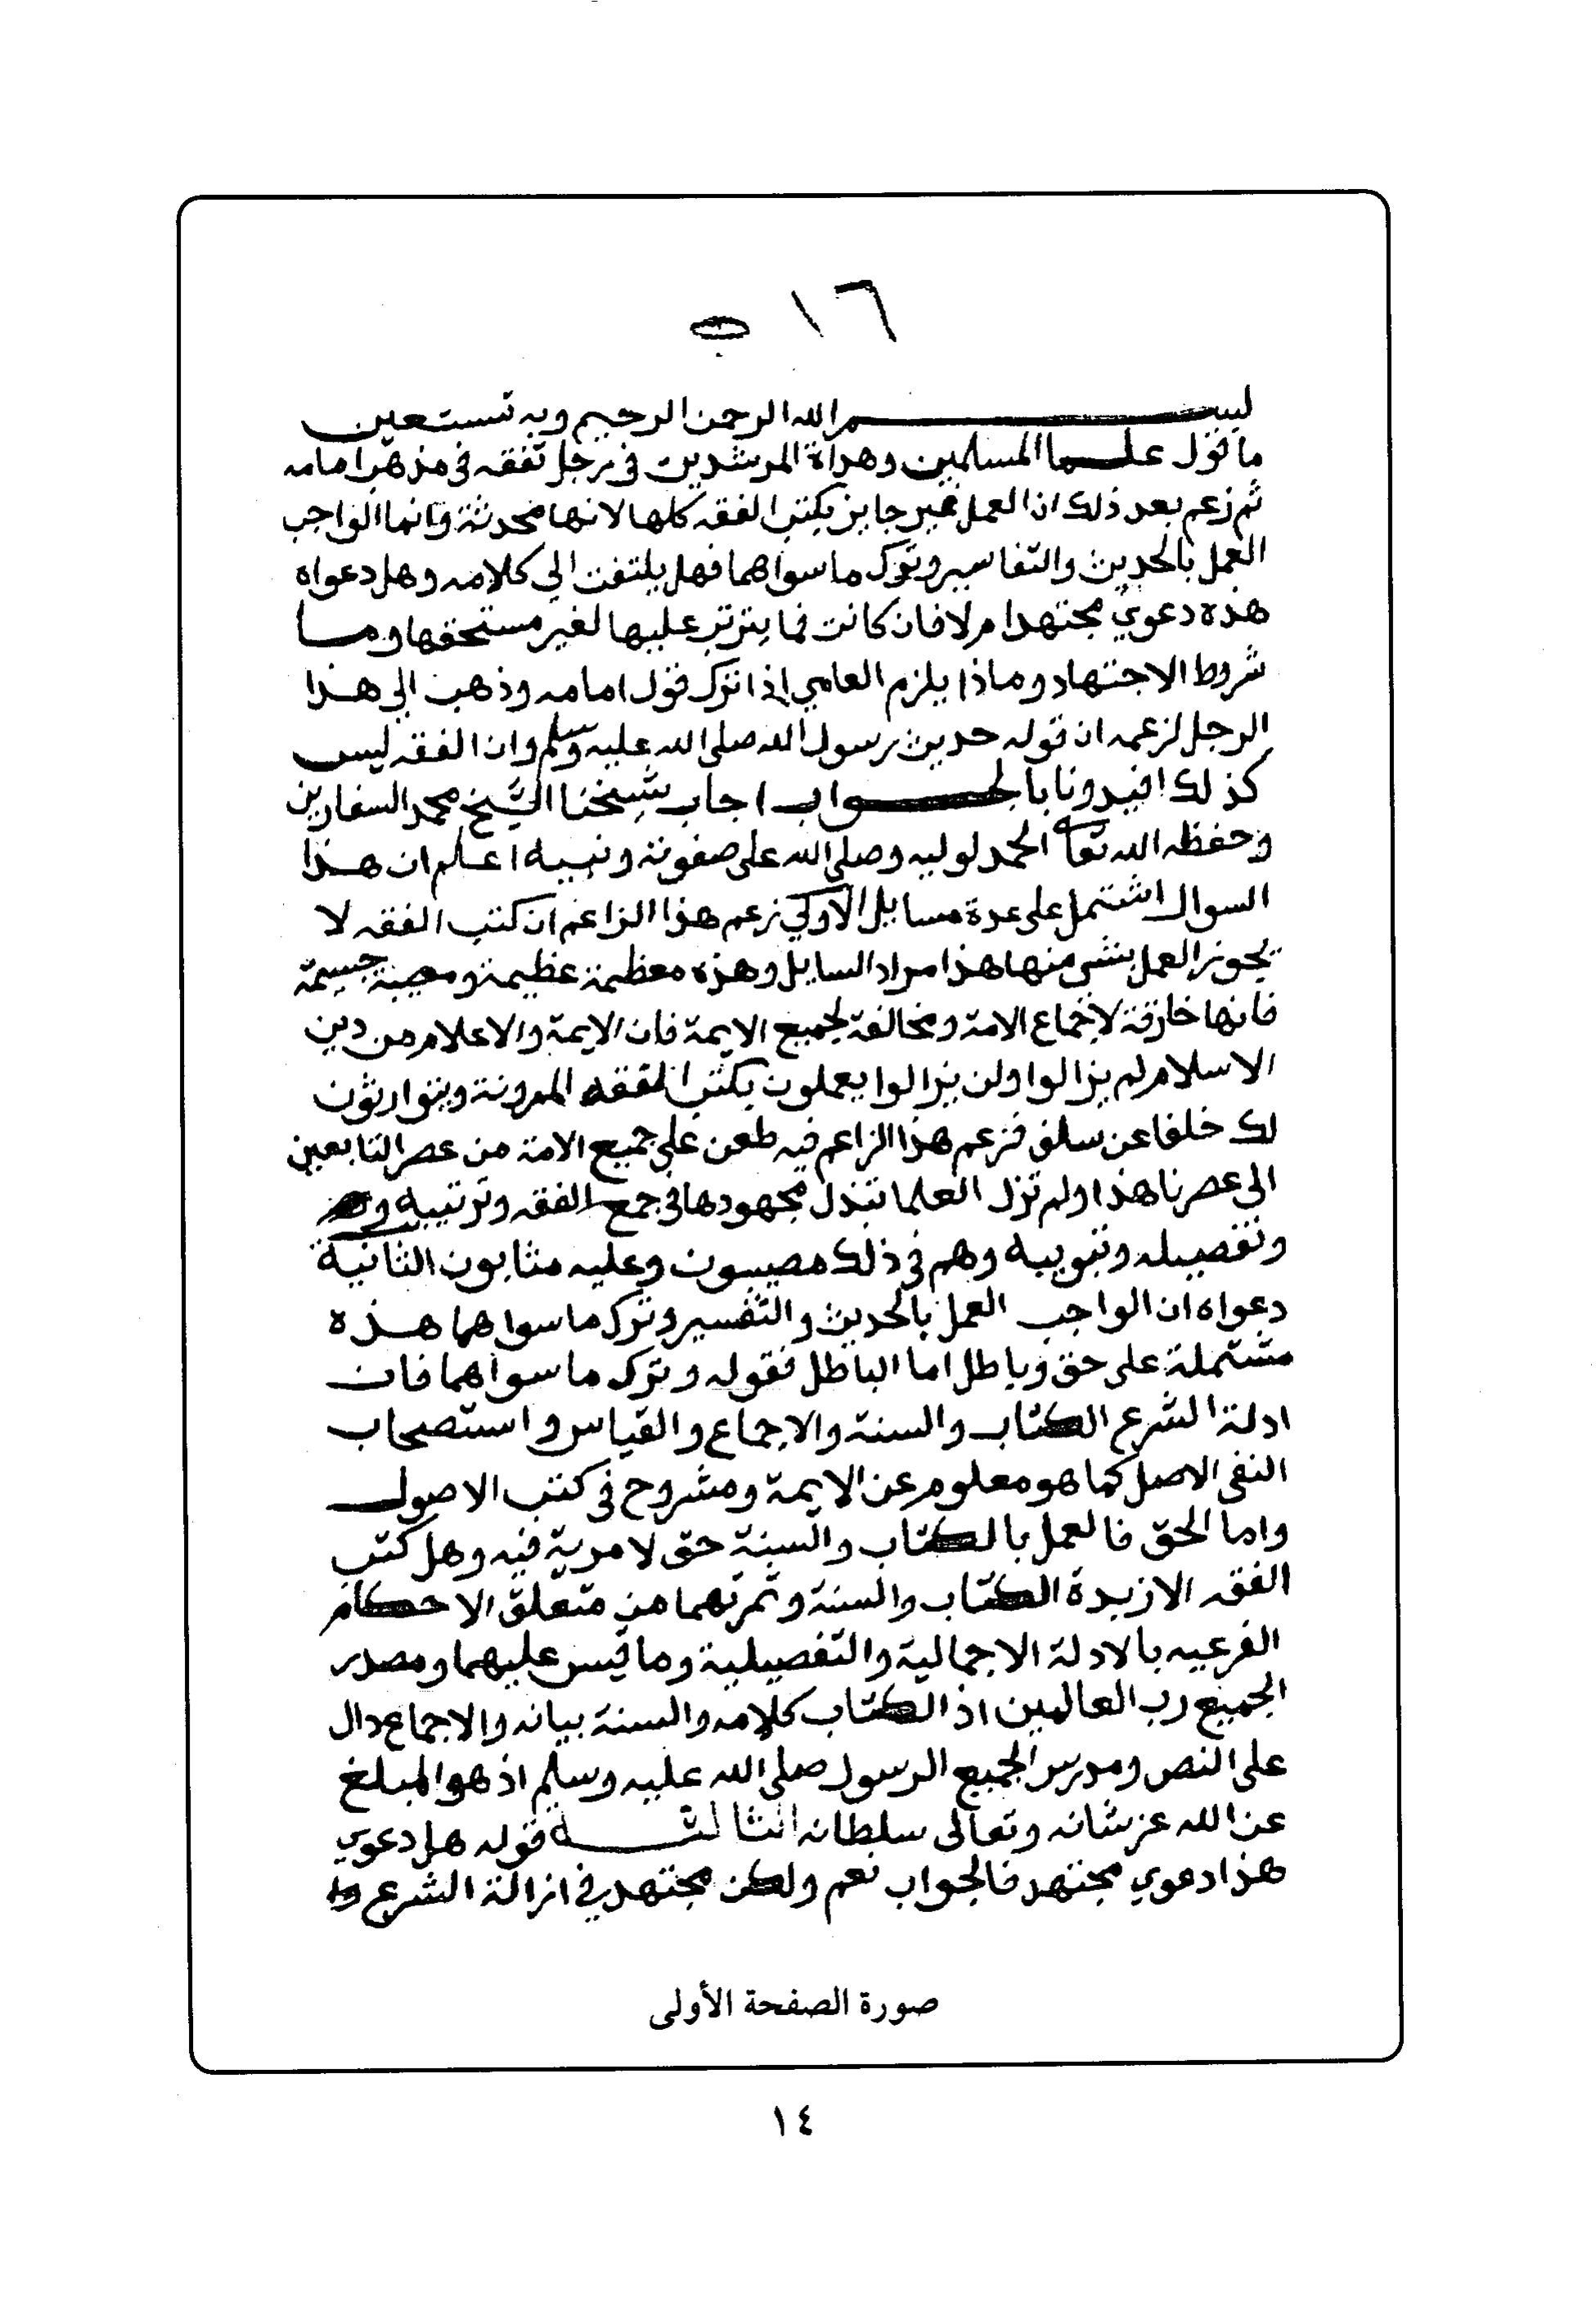 ١٦
بسم الله الرحمن الرحيم وبه نستعين
ما قول علما المسلمين وهداة المرشدين في رجل تفقه في مذهب امامه
ثم زعم بعد ذلك ان العمل غير جايز بكتب الفقه كلها لانها محدثة وانما الواجب
العمل بالحديث والتفاسير وترك ما سواهما فهل يلتفت الي كلامه وهل دعواه
هذه دعوي مجتهد ام لا فان كانت فما يترتب عليها لغير مستحقها وما
شروط الاجتهاد وماذا يلزم العامي اذا ترك قول امامه وذهب الي هذا
الرجل لزعمه ان قوله حديث رسول الله صلى الله عليه وسلم وان الفقه ليس
كذلك افيدونا بالجواب اجاب شيخنا الشيخ محمد السفاريني
وحفظه الله تعا الحمد لوليه وصلى الله على صفوته ونبيه اعلم ان هذا
السوال اشتمل على عدة مسايل الاولي زعم هذا الزاعم ان كتب الفقه لا
يجوز العمل بشي منها هذا مراد السايل وهذه معظمة عظيمة ومصيبة جسيمة
فانها خارقة لاجماع الامة ومخالفة لجميع الايمة فان الايمة والاعلام من دين
الاسلام لم يزالوا ولن يزالوا يعملون بكتب الفقه المدونة ويتوارثون
لك خلفا عن سلف فزعم هذا الزاعم فيه طعن على جميع الامة من عصر التابعين
الى عصرنا هذا ولم تزل العلما تبذل مجهودها في جمع الفقه وترتيبه
وتفصيله وتبويبه وهم في ذلك مصيبون وعليه مثابون الثانية
دعواه ان الواجب العمل بالحديث والتفسير وترك ما سواهما هذه
مشتملة على حق وباطل اما الباطل فقوله وترك ما سواهما فان
ادلة الشرع الكتاب والسنة والاجماع والقياس واستصحاب
النفي الاصل كما هو معلوم عن الايمة ومشروح في كتب الاصول
واما الحق فالعمل بالكتاب والسنة حق لا مرية فيه وهل كتب
الفقه الا زبدة الكتاب والسنة وثمرتهما من متعلق الاحكام
الفرعيه بالادلة الاجمالية والتفصيلية وما قيس عليهما ومصدر
الجميع رب العالمين اذ الكتاب كلامه والسنة بيانه والاجماع دال
على النص ومدرس الجميع الرسول صلى الله عليه وسلم اذ هو المبلغ
عن الله عز شانه وتعالى سلطانه الثالثة قوله هل دعوي
هذا دعوي مجتهد فالجواب نعم ولكن مجتهد في ازالة الشرع
صورة الصفحة الأولى
١٤